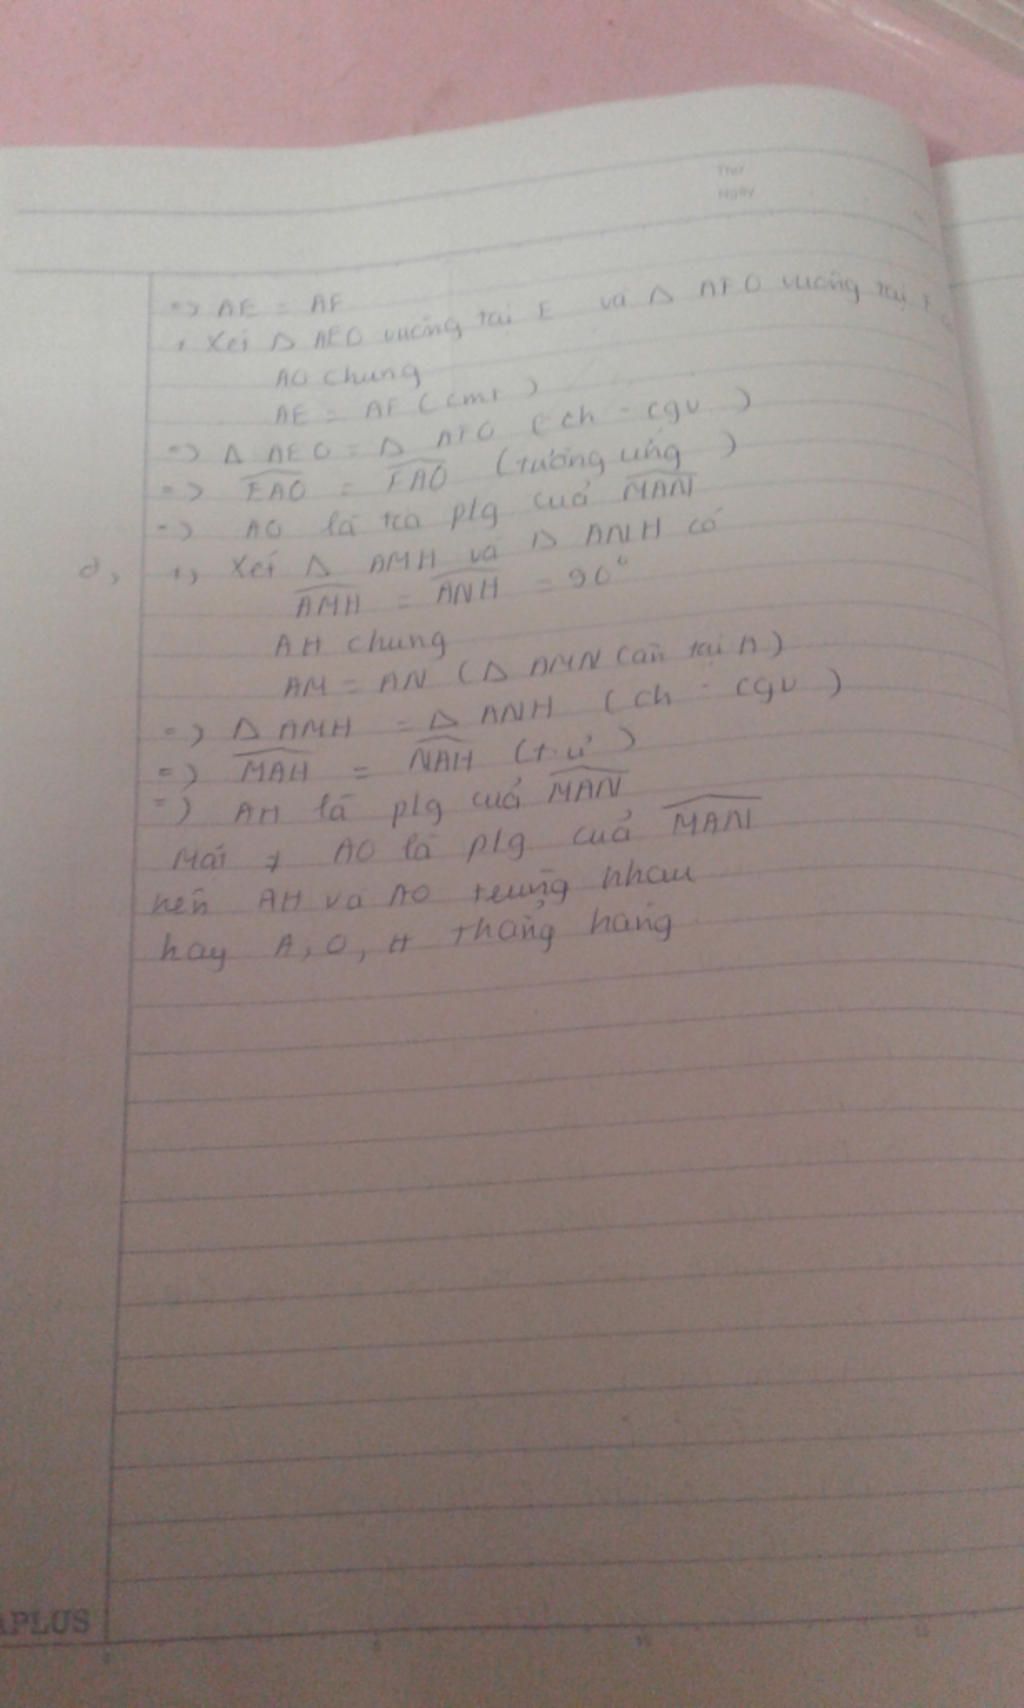 Thứ
Ngày
=> AE = AF
+ Xét Δ AEO vuông tại E và Δ AFO vuông tại F
AO chung
AE = AF (cmt)
=> Δ AEO = Δ AFO (ch - cgv)
=> EAO = FAO (tương ứng)
=> AO là tia plg của MAN
d, +, Xét Δ AMH và Δ ANH có
AMH = ANH = 90°
AH chung
AM = AN (Δ AMN cân tại A)
=> Δ AMH = Δ ANH (ch - cgv)
=> MAH = NAH (t.ư)
=> AH là plg của MAN
Mặt ≠ AO là plg của MAN
nên AH và AO trùng nhau
hay A, O, H thẳng hàng
APLUS
0 5 10 15